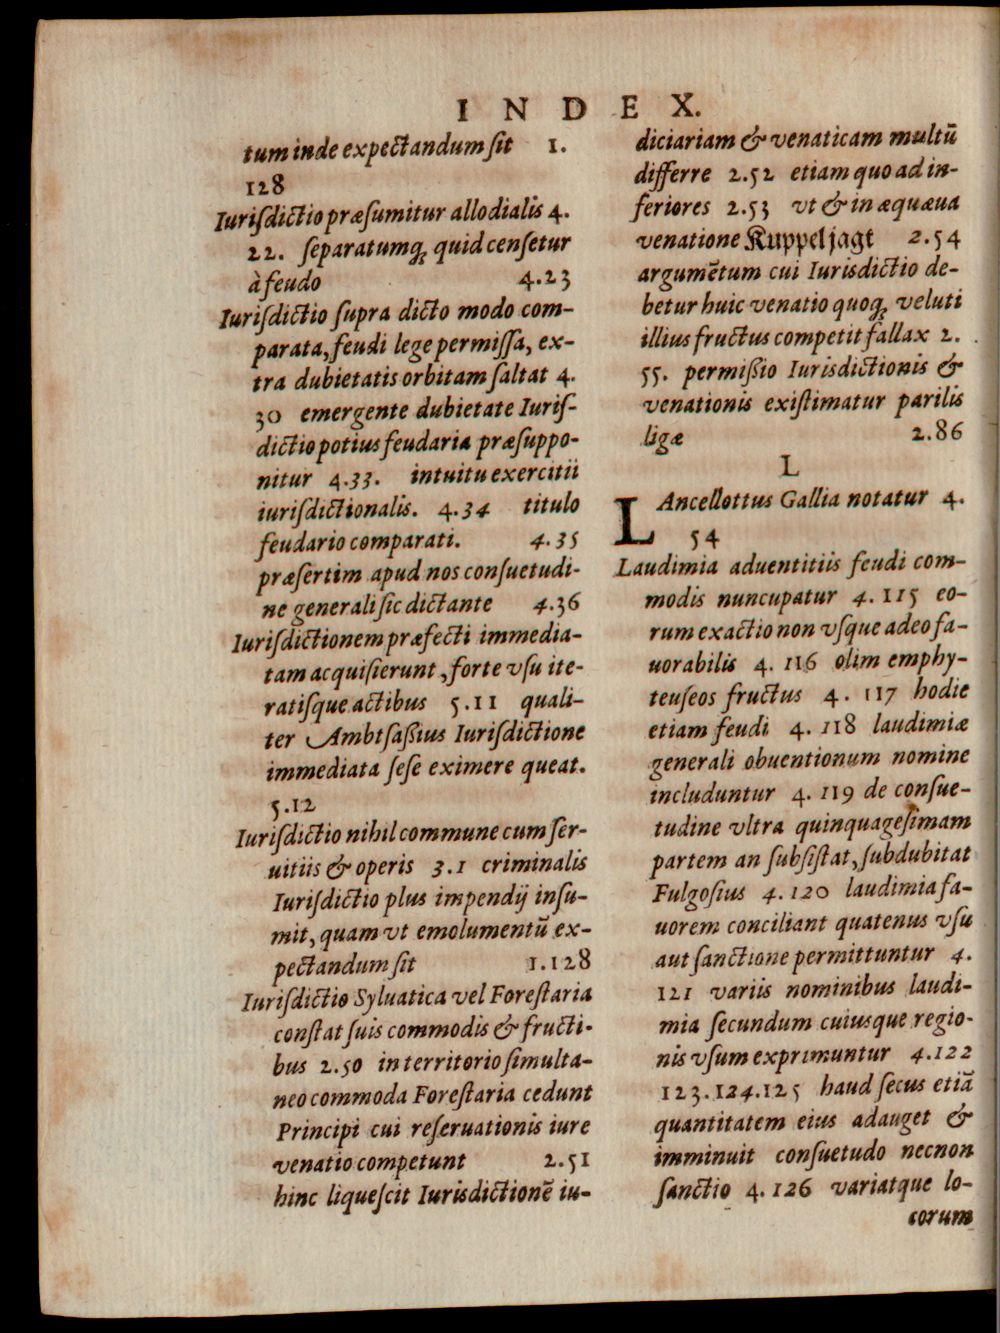 INDEX.
tum inde expectandum ſit 1.
128
Iuriſdictio præſumitur allodialis 4.
22. ſeparatumq; quid cenſetur
à feudo 4.23
Iuriſdictio ſupra dicto modo com-
parata, feudi lege permiſſa, ex-
tra dubietatis orbitam ſaltat 4.
30 emergente dubietate Iuriſ-
dictio potius feudaria præſuppo-
nitur 4.33. intuitu exercitii
iuriſdictionalis. 4.34 titulo
feudario comparati. 4.35
præſertim apud nos conſuetudi-
ne generali ſic dictante 4.36
Iuriſdictionem præfecti immedia-
tam acquiſierunt, forte vſu ite-
ratiſque actibus 5.11 quali-
ter Ambtſaßius Iuriſdictione
immediata ſeſe eximere queat.
5.12
Iuriſdictio nihil commune cum ſer-
uitiis & operis 3.1 criminalis
Iuriſdictio plus impendij inſu-
mit, quam vt emolumentũ ex-
pectandum ſit 1.128
Iuriſdictio Syluatica vel Foreſtaria
conſtat ſuis commodis & fructi-
bus 2.50 in territorio ſimulta-
neo commoda Foreſtaria cedunt
Principi cui reſeruationis iure
venatio competunt 2.51
hinc liqueſcit Iurisdictionẽ iu-
diciariam & venaticam multũ
differre 2.52 etiam quo ad in-
feriores 2.53 vt & in æquæua
venatione Kuppeljagt 2.54
argumẽtum cui Iurisdictio de-
betur huic venatio quoq; veluti
illius fructus competit fallax 2.
55. permißio Iurisdictionis &
venationis exiſtimatur parilis
ligæ 2.86
L
LAncellottus Gallia notatur 4.
54
Laudimia aduentitiis feudi com-
modis nuncupatur 4. 115 eo-
rum exactio non vſque adeo fa-
uorabilis 4. 116 olim emphy-
teuſeos fructus 4. 117 hodie
etiam feudi 4. 118 laudimiæ
generali obuentionum nomine
includuntur 4. 119 de conſue-
tudine vltra quinquageſimam
partem an ſubſiſtat, ſubdubitat
Fulgoſius 4.120 laudimia fa-
uorem conciliant quatenus vſu
aut ſanctione permittuntur 4.
121 variis nominibus laudi-
mia ſecundum cuiusque regio-
nis vſum exprimuntur 4.122
123.124.125 haud ſecus etiã
quantitatem eius adauget &
imminuit conſuetudo necnon
ſanctio 4.126 variatque lo-
corum